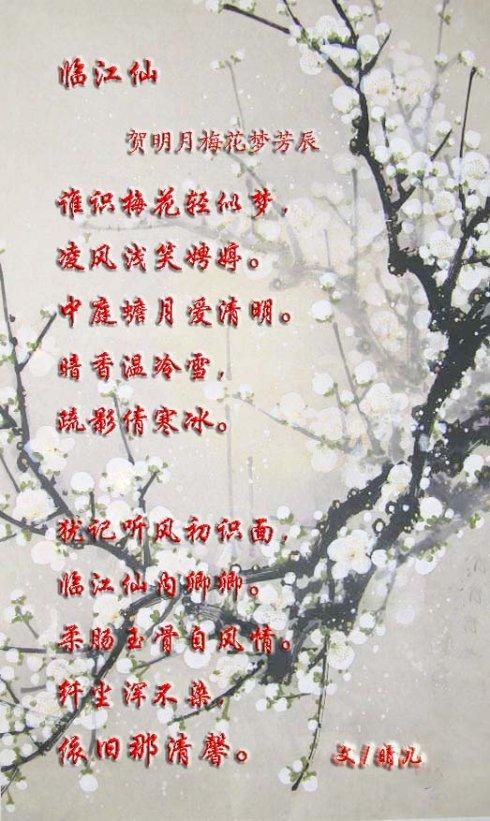 临江仙
贺明月梅花梦芳辰
谁识梅花轻似梦，
凌风浅笑娉婷。
中庭蟾月爱清明。
暗香温冷雪，
疏影倩寒冰。
犹记听风初识面，
临江仙内卿卿。
柔肠玉骨自风情。
纤尘浑不染，
依旧那清馨。
文/晴儿